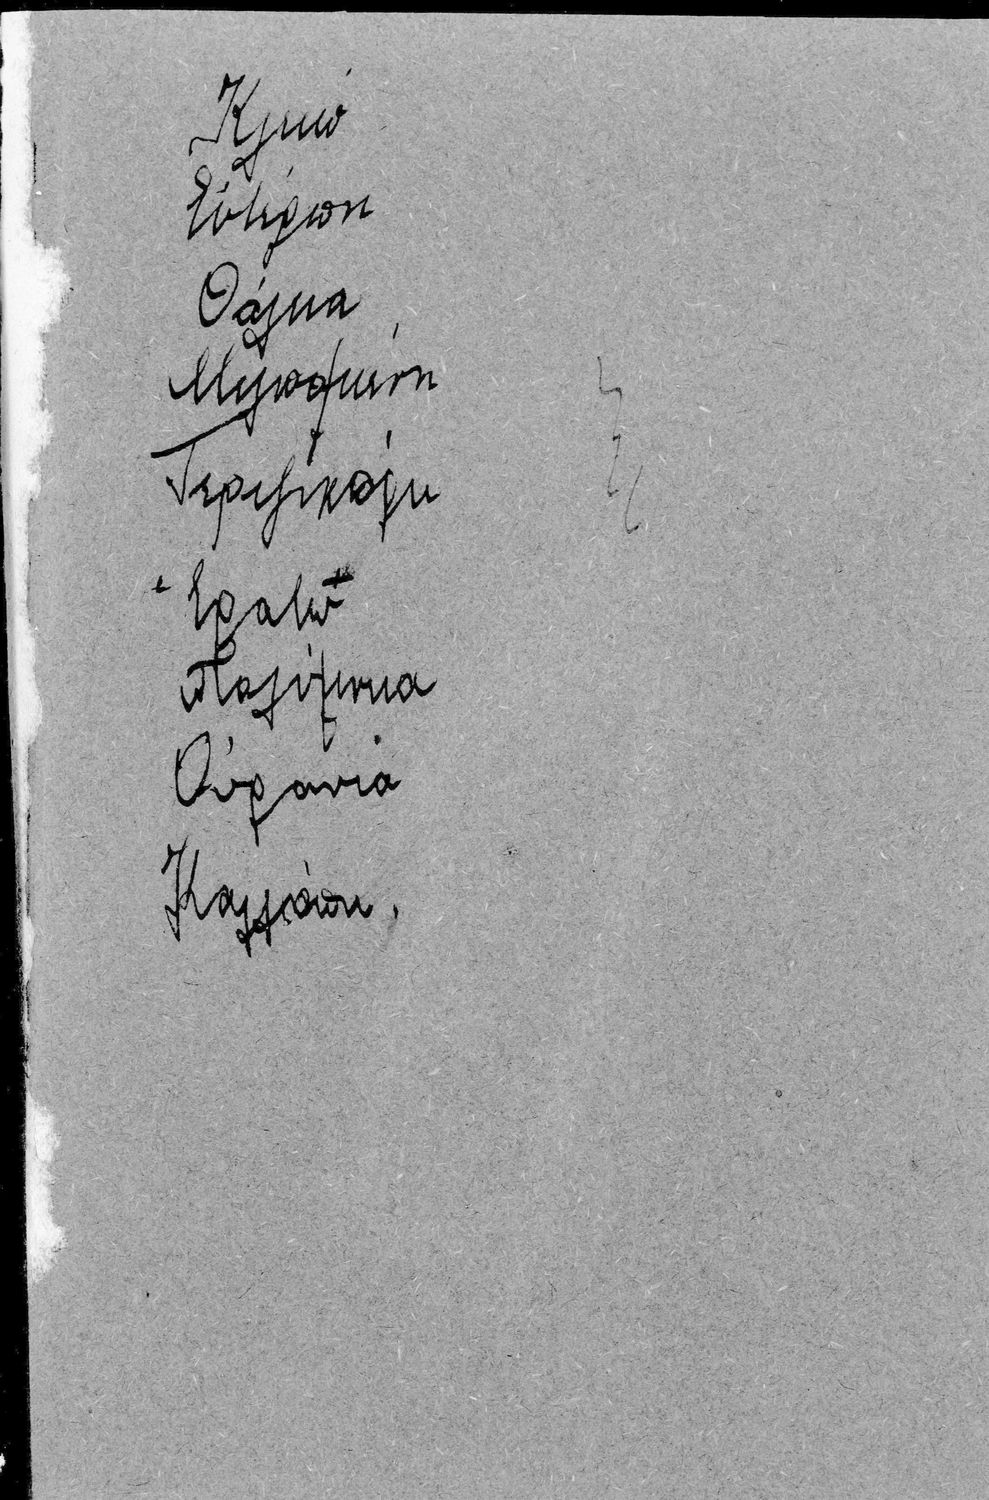 Κλειώ
Εὐτέρπη
Θάλεια
Μελπομένη
Τερψιχόρη
Ἐρατώ
Πολύμνια
Οὐρανία
Καλλιόπη.